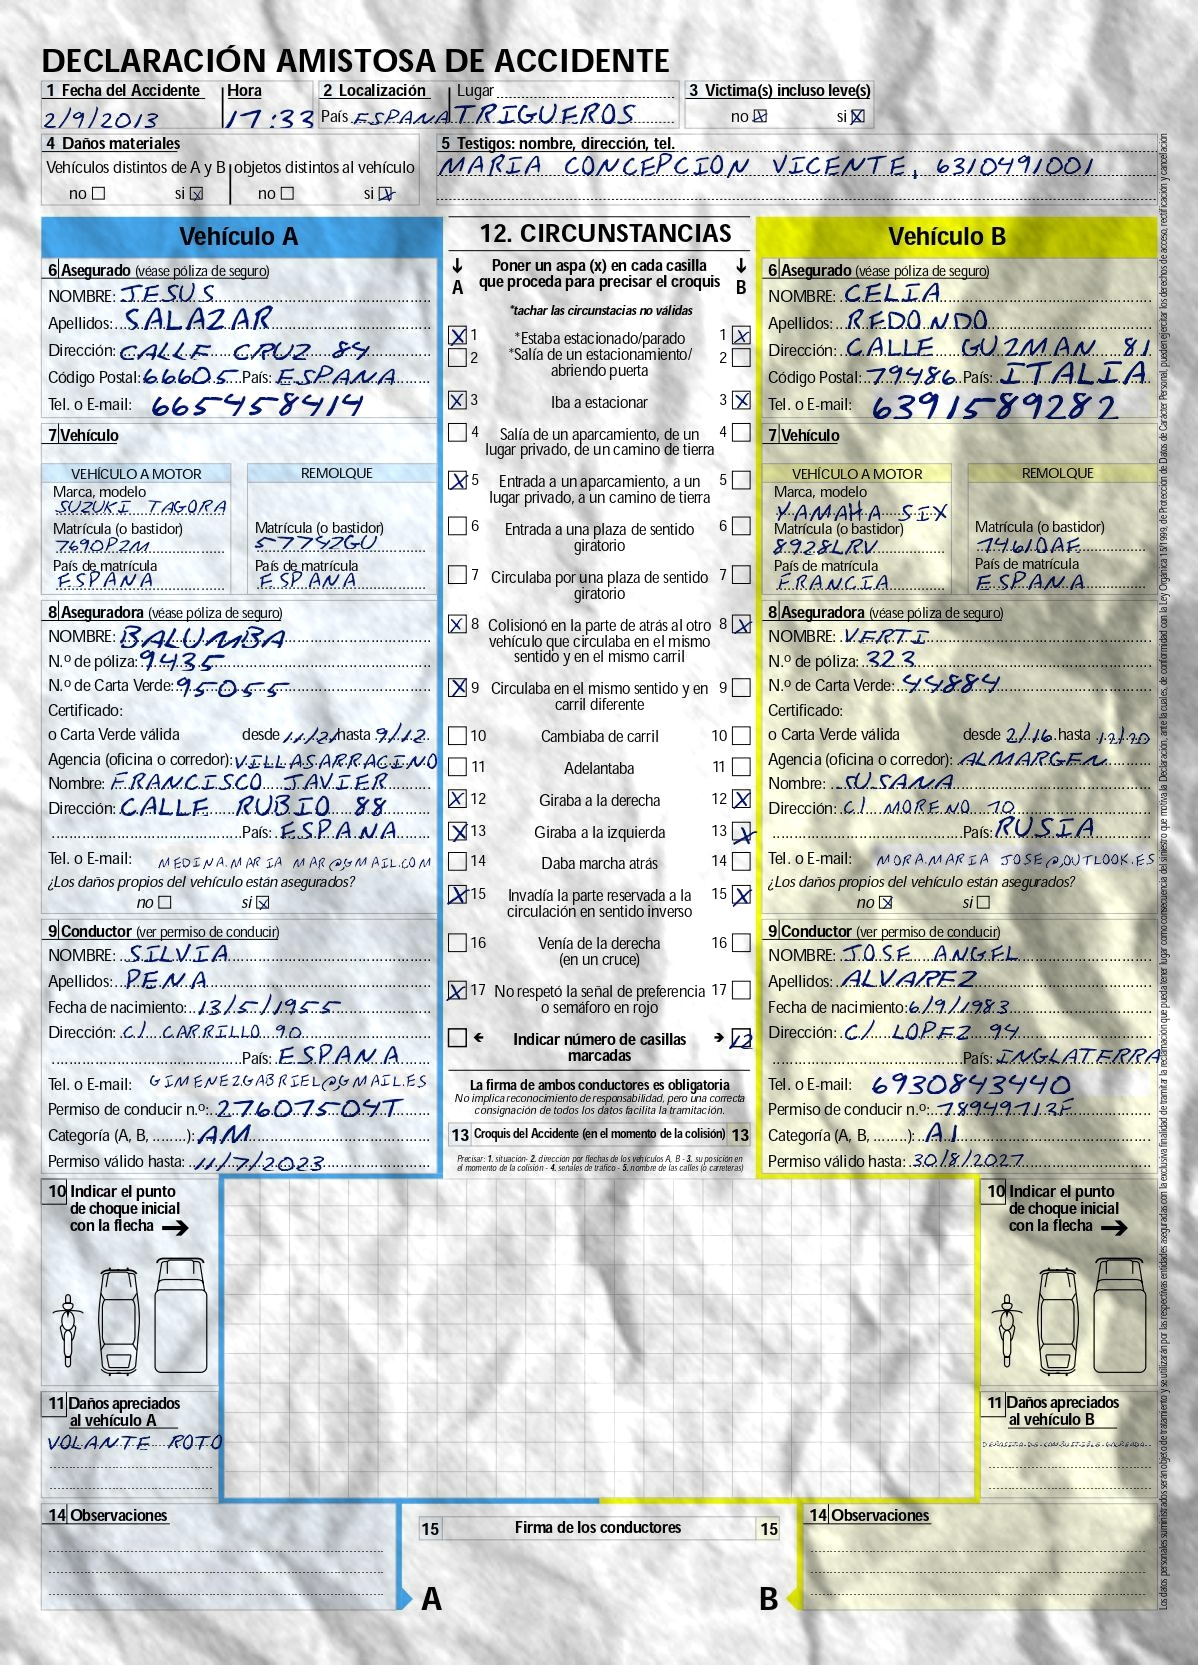 DECLARACIÓN AMISTOSA DE ACCIDENTE
1 Fecha del Accidente Hora 2 Localización Lugar 3 Victima(s) incluso leve(s)
2/9/2013 17:33 País ESPANA TRIGUEROS no si
4 Daños materiales 5 Testigos: nombre, dirección, tel.
Vehículos distintos de A y B objetos distintos al vehículo MARIA CONCEPCION VICENTE, 6310491001
no si no si
Vehículo A
6 Asegurado (véase póliza de seguro)
NOMBRE: JESUS
Apellidos: SALAZAR
Dirección: CALLE CRUZ 84
Código Postal: 66605 País: ESPANA
Tel. o E-mail: 665458414
7 Vehículo
VEHÍCULO A MOTOR REMOLQUE
Marca, modelo
SUZUKI TAGORA
Matrícula (o bastidor) Matrícula (o bastidor)
7690PZM 57752GU
País de matrícula País de matrícula
ESPANA ESPANA
8 Aseguradora (véase póliza de seguro)
NOMBRE: BALUMBA
N.º de póliza: 9435
N.º de Carta Verde: 95055
Certificado:
o Carta Verde válida desde 11/21 hasta 9/12
Agencia (oficina o corredor): VILLASARRACINO
Nombre: FRANCISCO JAVIER
Dirección: CALLE RUBIO 88
País: ESPANA
Tel. o E-mail: MEDINA.MARIA MAR@GMAIL.COM
¿Los daños propios del vehículo están asegurados?
no si
9 Conductor (ver permiso de conducir)
NOMBRE: SILVIA
Apellidos: PENA
Fecha de nacimiento: 13/5/1955
Dirección: C/ CARRILLO 90
País: ESPANA
Tel. o E-mail: GIMENEZGABRIEL@GMAIL.ES
Permiso de conducir n.º: 27607504T
Categoría (A, B, ........): AM
Permiso válido hasta: 11/7/2023
12. CIRCUNSTANCIAS
A Poner un aspa (x) en cada casilla que proceda para precisar el croquis B
*tachar las circunstacias no válidas
1 *Estaba estacionado/parado 1
2 *Salía de un estacionamiento/ 2
abriendo puerta
3 Iba a estacionar 3
4 Salía de un aparcamiento, de un 4
lugar privado, de un camino de tierra
5 Entrada a un aparcamiento, a un 5
lugar privado, a un camino de tierra
6 Entrada a una plaza de sentido 6
giratorio
7 Circulaba por una plaza de sentido 7
giratorio
8 Colisionó en la parte de atrás al otro 8
vehículo que circulaba en el mismo
sentido y en el mismo carril
9 Circulaba en el mismo sentido y en 9
carril diferente
10 Cambiaba de carril 10
11 Adelantaba 11
12 Giraba a la derecha 12
13 Giraba a la izquierda 13
14 Daba marcha atrás 14
15 Invadía la parte reservada a la 15
circulación en sentido inverso
16 Venía de la derecha 16
(en un cruce)
17 No respetó la señal de preferencia 17
o semáforo en rojo
Indicar número de casillas 12
marcadas
La firma de ambos conductores es obligatoria
No implica reconocimiento de responsabilidad, pero una correcta
consignación de todos los datos facilita la tramitación.
13 Croquis del Accidente (en el momento de la colisión) 13
Precisar: 1. situación- 2. dirección por flechas de los vehículos A, B - 3. su posición en
el momento de la colisión - 4. señales de tráfico - 5. nombre de las calles (o carreteras)
Vehículo B
6 Asegurado (véase póliza de seguro)
NOMBRE: CELIA
Apellidos: REDONDO
Dirección: CALLE GUZMAN 81
Código Postal: 79486 País: ITALIA
Tel. o E-mail: 6391589282
7 Vehículo
VEHÍCULO A MOTOR REMOLQUE
Marca, modelo
YAMAHA SIX
Matrícula (o bastidor) Matrícula (o bastidor)
8928LRV 7461DAE
País de matrícula País de matrícula
FRANCIA ESPANA
8 Aseguradora (véase póliza de seguro)
NOMBRE: VERTI
N.º de póliza: 323
N.º de Carta Verde: 44884
Certificado:
o Carta Verde válida desde 2/16 hasta 12/20
Agencia (oficina o corredor): ALMARGEN
Nombre: SUSANA
Dirección: C/ MORENO 70
País: RUSIA
Tel. o E-mail: MORA.MARIA JOSE@OUTLOOK.ES
¿Los daños propios del vehículo están asegurados?
no si
9 Conductor (ver permiso de conducir)
NOMBRE: JOSE ANGEL
Apellidos: ALVAREZ
Fecha de nacimiento: 6/9/1983
Dirección: C/ LOPEZ 94
País: INGLATERRA
Tel. o E-mail: 6930843440
Permiso de conducir n.º: 78949713F
Categoría (A, B, ........): A1
Permiso válido hasta: 30/8/2027
10 Indicar el punto
de choque inicial
con la flecha
11 Daños apreciados
al vehículo A
VOLANTE ROTO
10 Indicar el punto
de choque inicial
con la flecha
11 Daños apreciados
al vehículo B
DEPOSITO DE COMBUSTIBLE
14 Observaciones
15 Firma de los conductores 15
A B
14 Observaciones